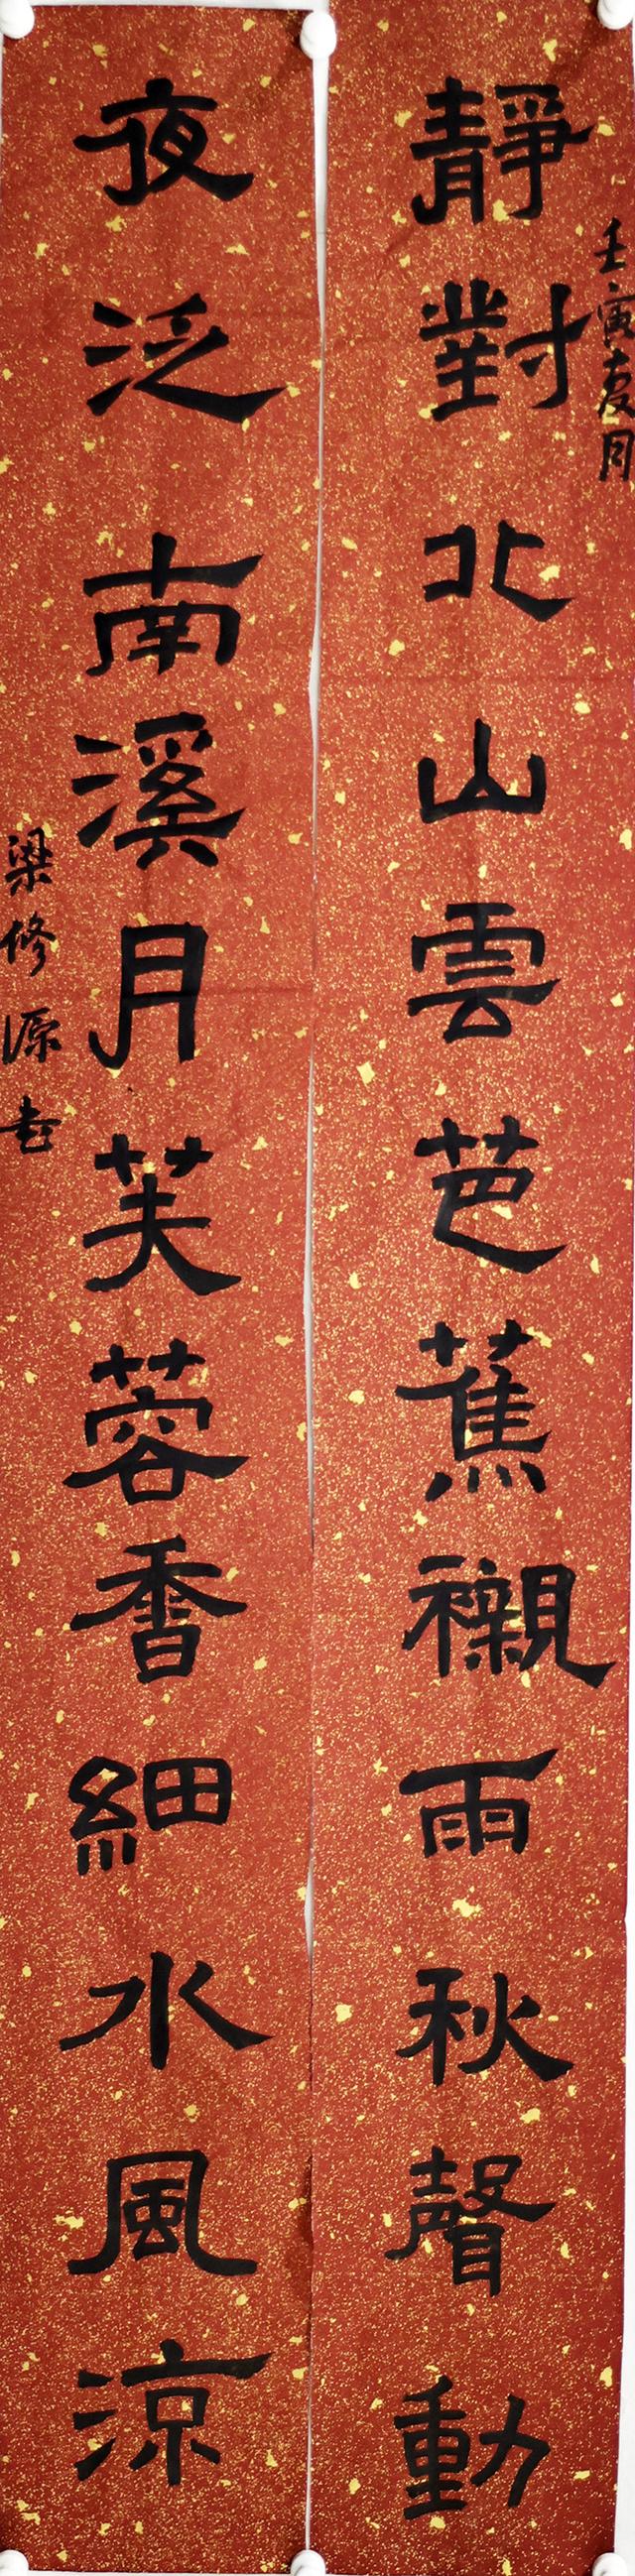 壬寅夏月
靜對北山雲芭蕉襯雨秋聲動
夜泛南溪月芙蓉香細水風涼
梁修源书